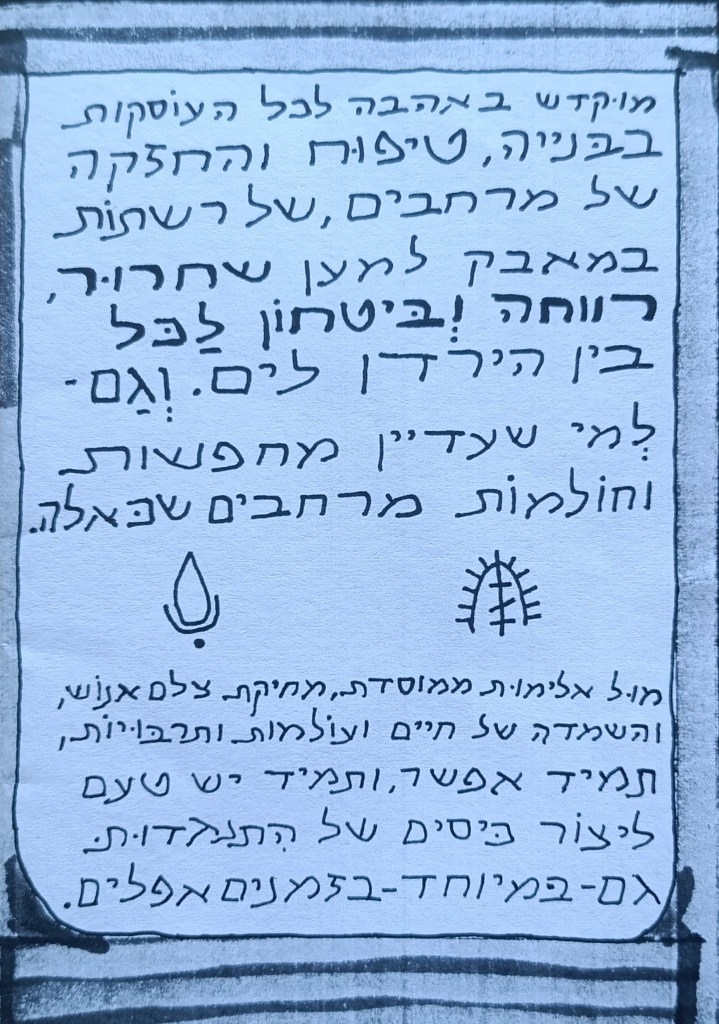 מוקדש באהבה לכל העוסקות
בבנייה, טיפוח והחזקה
של מרחבים, של רשתות
במאבק למען שחרור,
רווחה וְביטחון לַכּל
בין הירדן לים. וְגַם-
לְמי שעדיין מחפשות
וחולמות מרחבים שכאלה.
מול אלימות ממוסדת, מחיקת צלם אנוש,
והשמדה של חיים ועולמות ותרבויות,
תמיד אפשר, ותמיד יש טעם
ליצור כיסים של הִתנגדות.
גם-במיוחד-בזמנים אפלים.